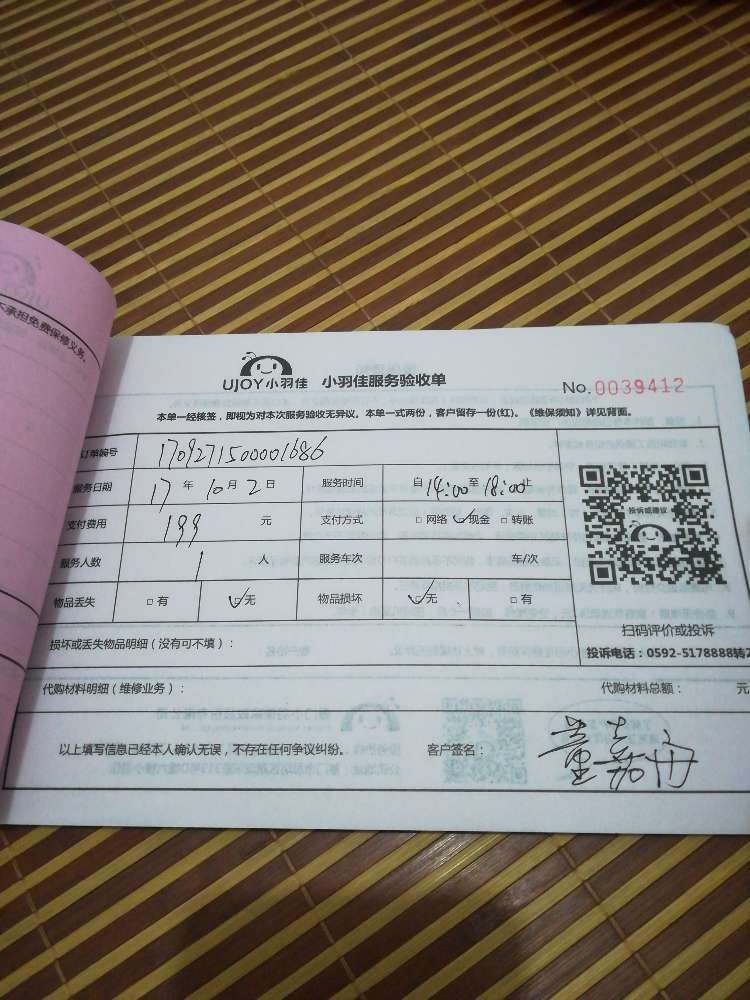 不承担免费保修义务。
UJOY小羽佳 小羽佳服务验收单 No.0039412
本单一经核签，即视为对本次服务验收无异议。本单一式两份，客户留存一份(红)。《维保须知》详见背面。
订单编号 170927150001686
服务日期 17 年 10 月 2 日 服务时间 自 14:00 至 18:00 止
支付费用 199 元 支付方式 □ 网络 ☑ 现金 □ 转账
投诉或建议
服务人数 1 人 服务车次 车/次
物品丢失 □ 有 ☑ 无 物品损坏 ☑ 无 □ 有
扫码评价或投诉
损坏或丢失物品明细（没有可不填）：
投诉电话：0592-5178888转2
代购材料明细（维修业务）： 代购材料总额： 元
以上填写信息已经本人确认无误，不存在任何争议纠纷。 客户签名：